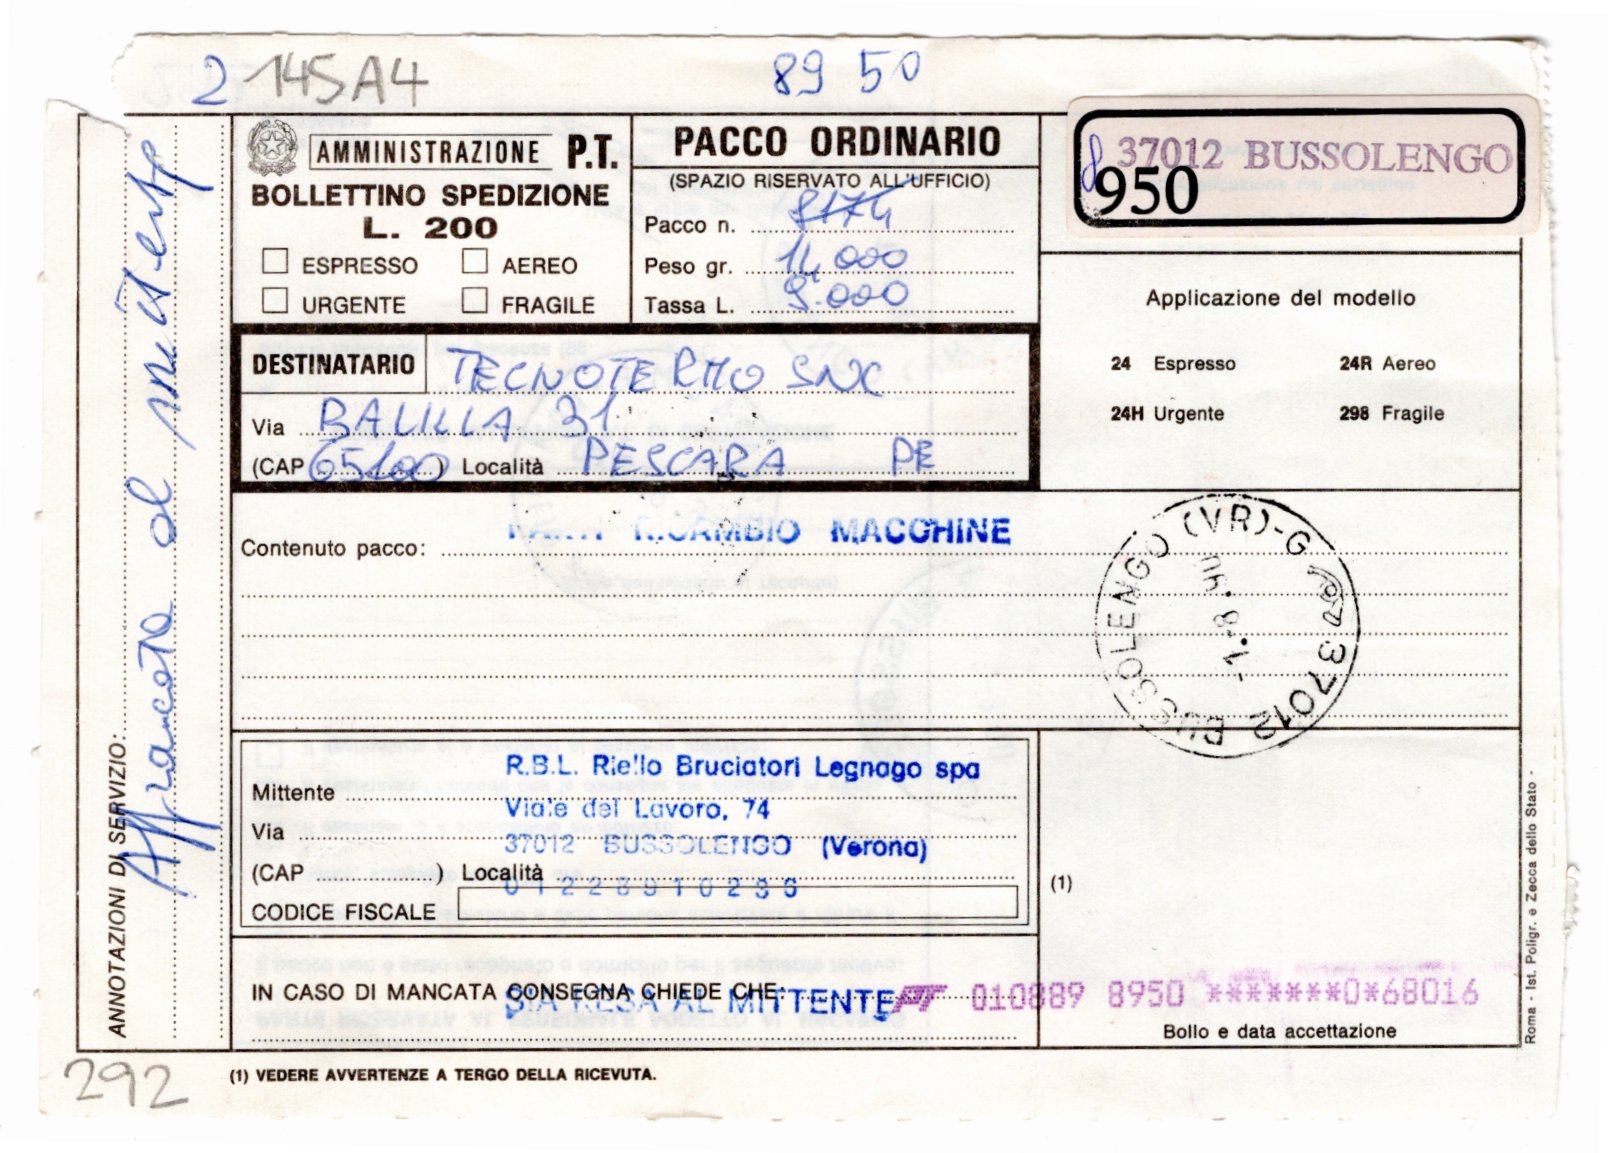 2 145A4
89 50
AMMINISTRAZIONE P.T.
BOLLETTINO SPEDIZIONE
L. 200
ESPRESSO AEREO
URGENTE FRAGILE
PACCO ORDINARIO
(SPAZIO RISERVATO ALL'UFFICIO)
Pacco n. 8174
Peso gr. 14.000
Tassa L. 9.000
37012 BUSSOLENGO
8950
Applicazione del modello
24 Espresso 24R Aereo
24H Urgente 298 Fragile
DESTINATARIO TECNOTERMO SNC
Via BALILLA 31
(CAP 65100) Località PESCARA PE
Contenuto pacco: PARTI RICAMBIO MACCHINE
37012 BUSSOLENGO (VR)-G
R.B.L. Riello Bruciatori Legnago spa
Mittente
Viale del Lavoro, 74
Via
37012 BUSSOLENGO (Verona)
(CAP ) Località
CODICE FISCALE
IN CASO DI MANCATA CONSEGNA CHIEDE CHE:
SIA RESA AL MITTENTE
PT 010889 8950 *******0*68016
(1)
Bollo e data accettazione
ANNOTAZIONI DI SERVIZIO:
Affrancata al mittente
Roma - Ist. Poligr. e Zecca dello Stato -
292
(1) VEDERE AVVERTENZE A TERGO DELLA RICEVUTA.